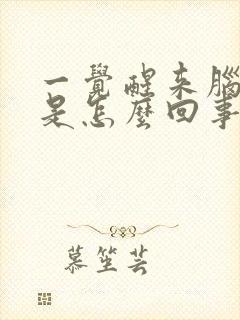 一覺醒來腦
是怎麼回事
慕笙芸